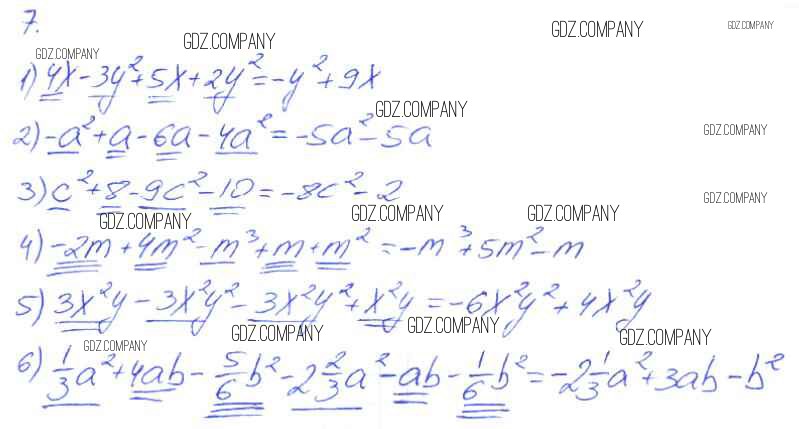 7.
GDZ.COMPANY GDZ.COMPANY GDZ.COMPANY GDZ.COMPANY
1) 4x - 3y² + 5x + 2y² = -y² + 9x
GDZ.COMPANY
2) -a² + a - 6a - 4a² = -5a² - 5a
GDZ.COMPANY
3) c² + 8 - 9c² - 10 = -8c² - 2
GDZ.COMPANY
GDZ.COMPANY GDZ.COMPANY GDZ.COMPANY
4) -2m + 4m² - m³ + m + m² = -m³ + 5m² - m
5) 3x²y - 3x²y² - 3x²y² + x²y = -6x²y² + 4x²y
GDZ.COMPANY GDZ.COMPANY GDZ.COMPANY GDZ.COMPANY
6) 1/3a² + 4ab - 5/6b² - 2 2/3a² - ab - 1/6b² = -2 1/3a² + 3ab - b²